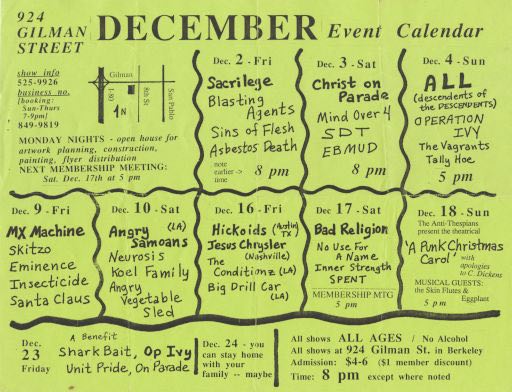 924
GILMAN
STREET
DECEMBER Event Calendar
show info
525-9926
business no.
[booking:
Sun-Thurs
7-9pm]
849-9819
Gilman
I-80
8th St
San Pablo
N
MONDAY NIGHTS - open house for
artwork planning, construction,
painting, flyer distribution
NEXT MEMBERSHIP MEETING:
Sat. Dec. 17th at 5 pm
Dec. 2 - Fri
Sacrilege
Blasting
Agents
Sins of Flesh
Asbestos Death
note
earlier ->
time
8 pm
Dec. 3 - Sat
Christ on
Parade
Mind Over 4
SDT
EBMUD
8 pm
Dec. 4 - Sun
ALL
(descendents of
the DESCENDENTS)
OPERATION
IVY
The Vagrants
Tally Hoe
5 pm
Dec. 9 - Fri
MX Machine
Skitzo
Eminence
Insecticide
Santa Claus
Dec. 10 - Sat
Angry (LA)
Samoans
Neurosis
Koel Family
Angry
Vegetable
Sled
Dec. 16 - Fri
Hickoids (Austin, TX)
Jesus Chrysler
(Nashville)
The
Conditionz (LA)
Big Drill Car
(LA)
Dec. 17 - Sat
Bad Religion
No Use For
A Name
Inner Strength
SPENT
MEMBERSHIP MTG
5 pm
Dec. 18 - Sun
The Anti-Thespians
present the theatrical
'A Punk Christmas
Carol' with
apologies
to C. Dickens
MUSICAL GUESTS:
the Skin Flutes &
Eggplant
5 pm
Dec.
23
Friday
A Benefit
Shark Bait, Op Ivy
Unit Pride, On Parade
Dec. 24 - you
can stay home
with your
family -- maybe
All shows ALL AGES / No Alcohol
All shows at 924 Gilman St. in Berkeley
Admission: $4-6 ($1 member discount)
Time: 8 pm except where noted